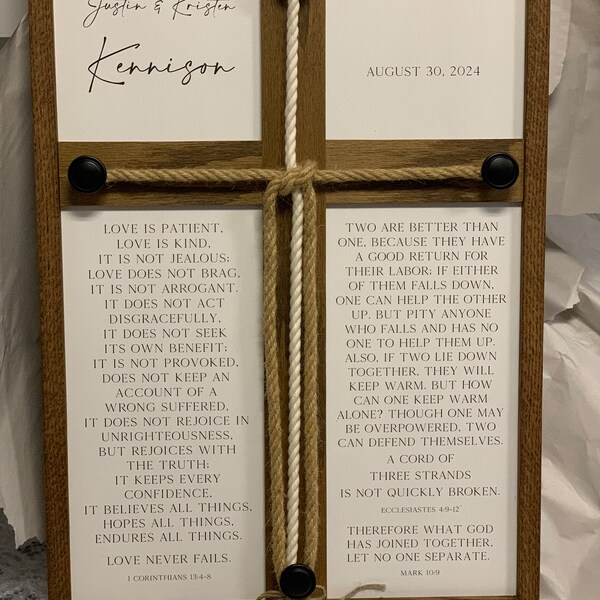 Justin & Kristen
Kennison
AUGUST 30, 2024
LOVE IS PATIENT,
LOVE IS KIND,
IT IS NOT JEALOUS;
LOVE DOES NOT BRAG,
IT IS NOT ARROGANT.
IT DOES NOT ACT
DISGRACEFULLY,
IT DOES NOT SEEK
ITS OWN BENEFIT;
IT IS NOT PROVOKED,
DOES NOT KEEP AN
ACCOUNT OF A
WRONG SUFFERED,
IT DOES NOT REJOICE IN
UNRIGHTEOUSNESS,
BUT REJOICES WITH
THE TRUTH;
IT KEEPS EVERY
CONFIDENCE,
IT BELIEVES ALL THINGS,
HOPES ALL THINGS,
ENDURES ALL THINGS.
LOVE NEVER FAILS.
1 CORINTHIANS 13:4-8
TWO ARE BETTER THAN
ONE, BECAUSE THEY HAVE
A GOOD RETURN FOR
THEIR LABOR: IF EITHER
OF THEM FALLS DOWN,
ONE CAN HELP THE OTHER
UP. BUT PITY ANYONE
WHO FALLS AND HAS NO
ONE TO HELP THEM UP.
ALSO, IF TWO LIE DOWN
TOGETHER, THEY WILL
KEEP WARM. BUT HOW
CAN ONE KEEP WARM
ALONE? THOUGH ONE MAY
BE OVERPOWERED, TWO
CAN DEFEND THEMSELVES.
A CORD OF
THREE STRANDS
IS NOT QUICKLY BROKEN.
ECCLESIASTES 4:9-12
THEREFORE WHAT GOD
HAS JOINED TOGETHER,
LET NO ONE SEPARATE.
MARK 10:9